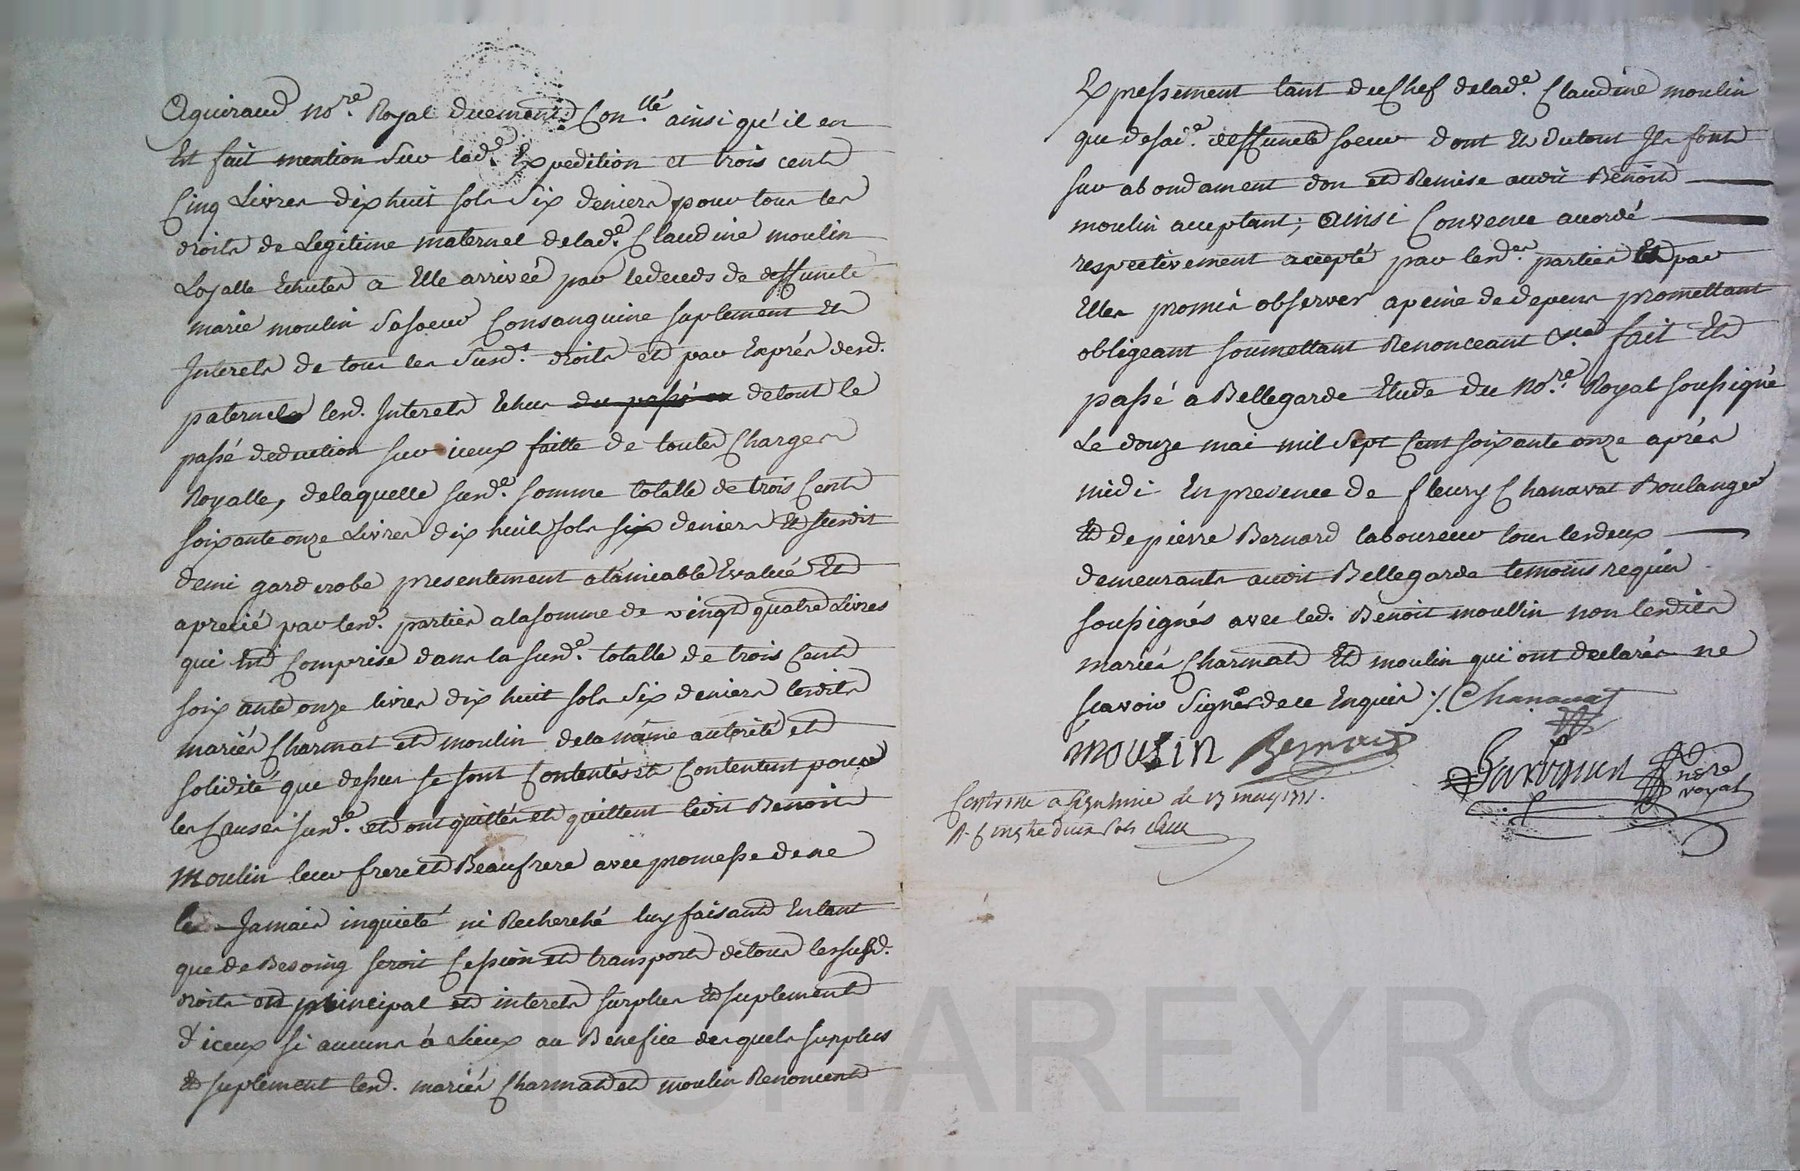 Aguiraud no.re Royal duement Con.llé ainsi qu'il en
Est fait mention sur lad.e Expedition et trois cent
Cinq Livres dix huit sols six deniers pour tous les
droits de Legitime maternel delad.e Claudine moulin
Loyalle Echutes a Elle arrivée par le deceds de deffuncte
marie moulin sa soeur Consanguine suplement Et
Interets de tous les susd.s droits et par Exprés desd.
paternels lesd. Interets Echus du passé en de tout le
passé deduction sur iceux faitte de toutes Charges
Royalle, delaquelle susd.e somme totalle de trois Cent
soixante onze Livres dix huit sols six deniers Et susdit
demi gard robe presentement a lamiable Evalué Et
aprecié par lesd. parties a la somme de vingt quatre Livres
qui Est Comprise dans la susd.e totalle de trois Cent
soixante onze livres dix huit sols six deniers lesdits
mariés Charmat et moulin de la même autorité et
solidité que dessus se sont Contentés et Contentent pour
les Causes susd.e et ont quittés et quittent ledit Benoit
Moulin leur frere et Beaufrere avec promesse de ne
le Jamais inquieté ni Recherché luy faisant En tant
que de Besoing seroit Cession et transport de tous les susd.
droits en principal et interets surplus et suplement
d'iceux si aucuns à Lieux au Benefice desquels surplus
et suplement lesd. mariés Charmat et moulin Renoncent
Expressement tant du Chef delad.e Claudine moulin
que de sad.e deffuncte soeur dont Et du tout Ils font
sur abondament don et Remise audit Benoit
moulin acceptant; Ainsi Convenu acordé
respectivement accepté par lesd.es parties Et par
Elles promis observer a peine de depens promettant
obligeant soumettant Renonceant &.a fait Et
passé a Bellegarde Etude du No.re Royal soussigné
Le douze mai mil sept Cent soixante onze aprés
midi En presence de fleury Chanavat Boulanger
Et de pierre Bernard laboureur tous les deux
demeurants audit Bellegarde temoins requis
soussignés avec led. Benoit moullin non lesdits
mariés Charmat Et moulin qui ont declarés ne
scavoir signer de ce Enquis ./. Chanavat
moulin Bernard
nore
royal
Controllé a le 13 may 1771.